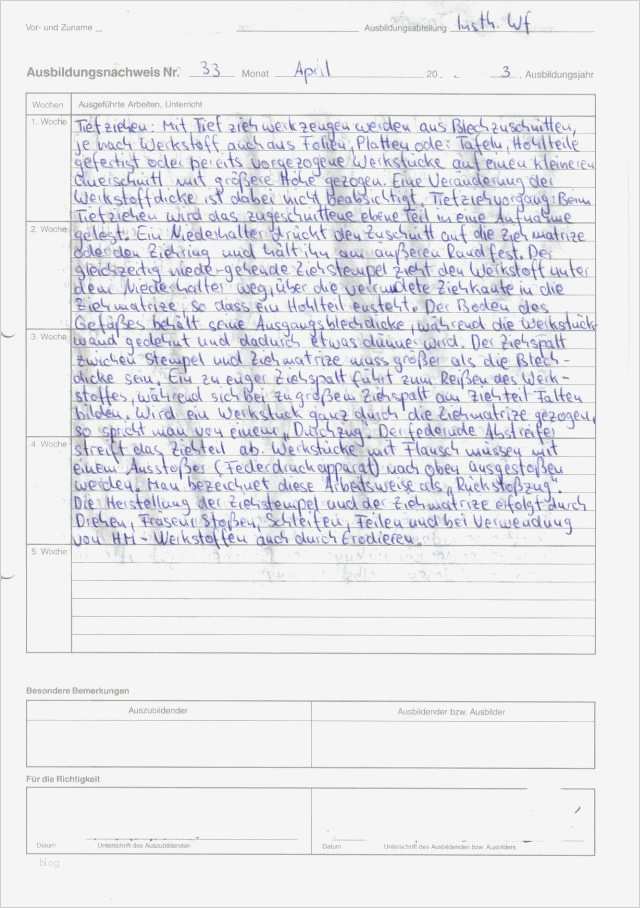 Vor- und Zuname
Ausbildungsabteilung Insth. Wf
Ausbildungsnachweis Nr. 33 Monat April 20 3 Ausbildungsjahr
Wochen Ausgeführte Arbeiten, Unterricht
1. Woche Tiefziehen: Mit Tief ziehwerkzeugen werden aus Blechzuschnitten,
je nach Werkstoff auch aus Folien, Platten oder Tafeln, Hohlteile
gefertigt oder bereits vorgezogene Werkstücke auf einen kleineren
Querschnitt mit größere Höhe gezogen. Eine Veränderung der
Werkstoffdicke ist dabei nicht beabsichtigt. Tiefziehvorgang: Beim
Tiefziehen wird das zugeschnittene ebene Teil in eine Aufnahme
2. Woche gelegt. Ein Niederhalter drückt den Zuschnitt auf die Ziehmatrize
oder den Ziehring und hält ihn am äußeren Rand fest. Der
gleichzeitig niede-gehende Ziehstempel zieht den Werkstoff unter
dem Niederhalter weg, über die gerundete Ziehkante in die
Ziehmatrize, so dass ein Hohlteil ensteht. Der Boden des
Gefäßes behält seine Ausgangsblechdicke, während die Werkstück-
3. Woche wand gedehnt und dadurch etwas dünner wird. Der Ziehspalt
zwichen Stempel und Ziehmatrize muss größer als die Blech-
dicke sein. Ein zu enger Ziehspalt führt zum Reißen des Werk-
stoffes, während sich bei zu großem Ziehspalt am Ziehteil Falten
bilden. Wird ein Werkstück ganz durch die Ziehmatrize gezogen,
so spricht man von einem „Durchzug". Der federnde Abstreifer
4. Woche streift das Ziehteil ab. Werkstücke mit Flausch müssen mit
einem Ausstoßer (Federdruckapparat) nach oben ausgestoßen
werden. Man bezeichnet diese Arbeitsweise als „Rückstoßzug".
Die Herstellung der Ziehstempel und der Ziehmatrize erfolgt durch
Drehen, Fräsen, Stoßen, Schleifen, Feilen und bei Verwendung
von HM - Werkstoffen auch durch Erodieren.
5. Woche
Besondere Bemerkungen
Auszubildender Ausbildender bzw. Ausbilder
Für die Richtigkeit
Datum Unterschrift des Auszubildenden Datum Unterschrift des Ausbildenden bzw. Ausbilders
blog